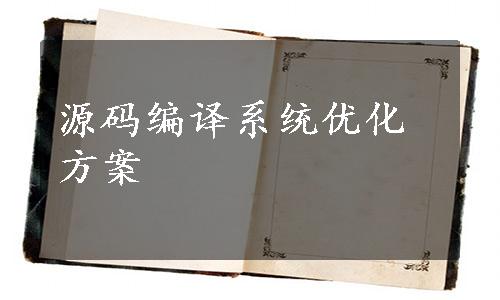 源码编译系统优化
方案